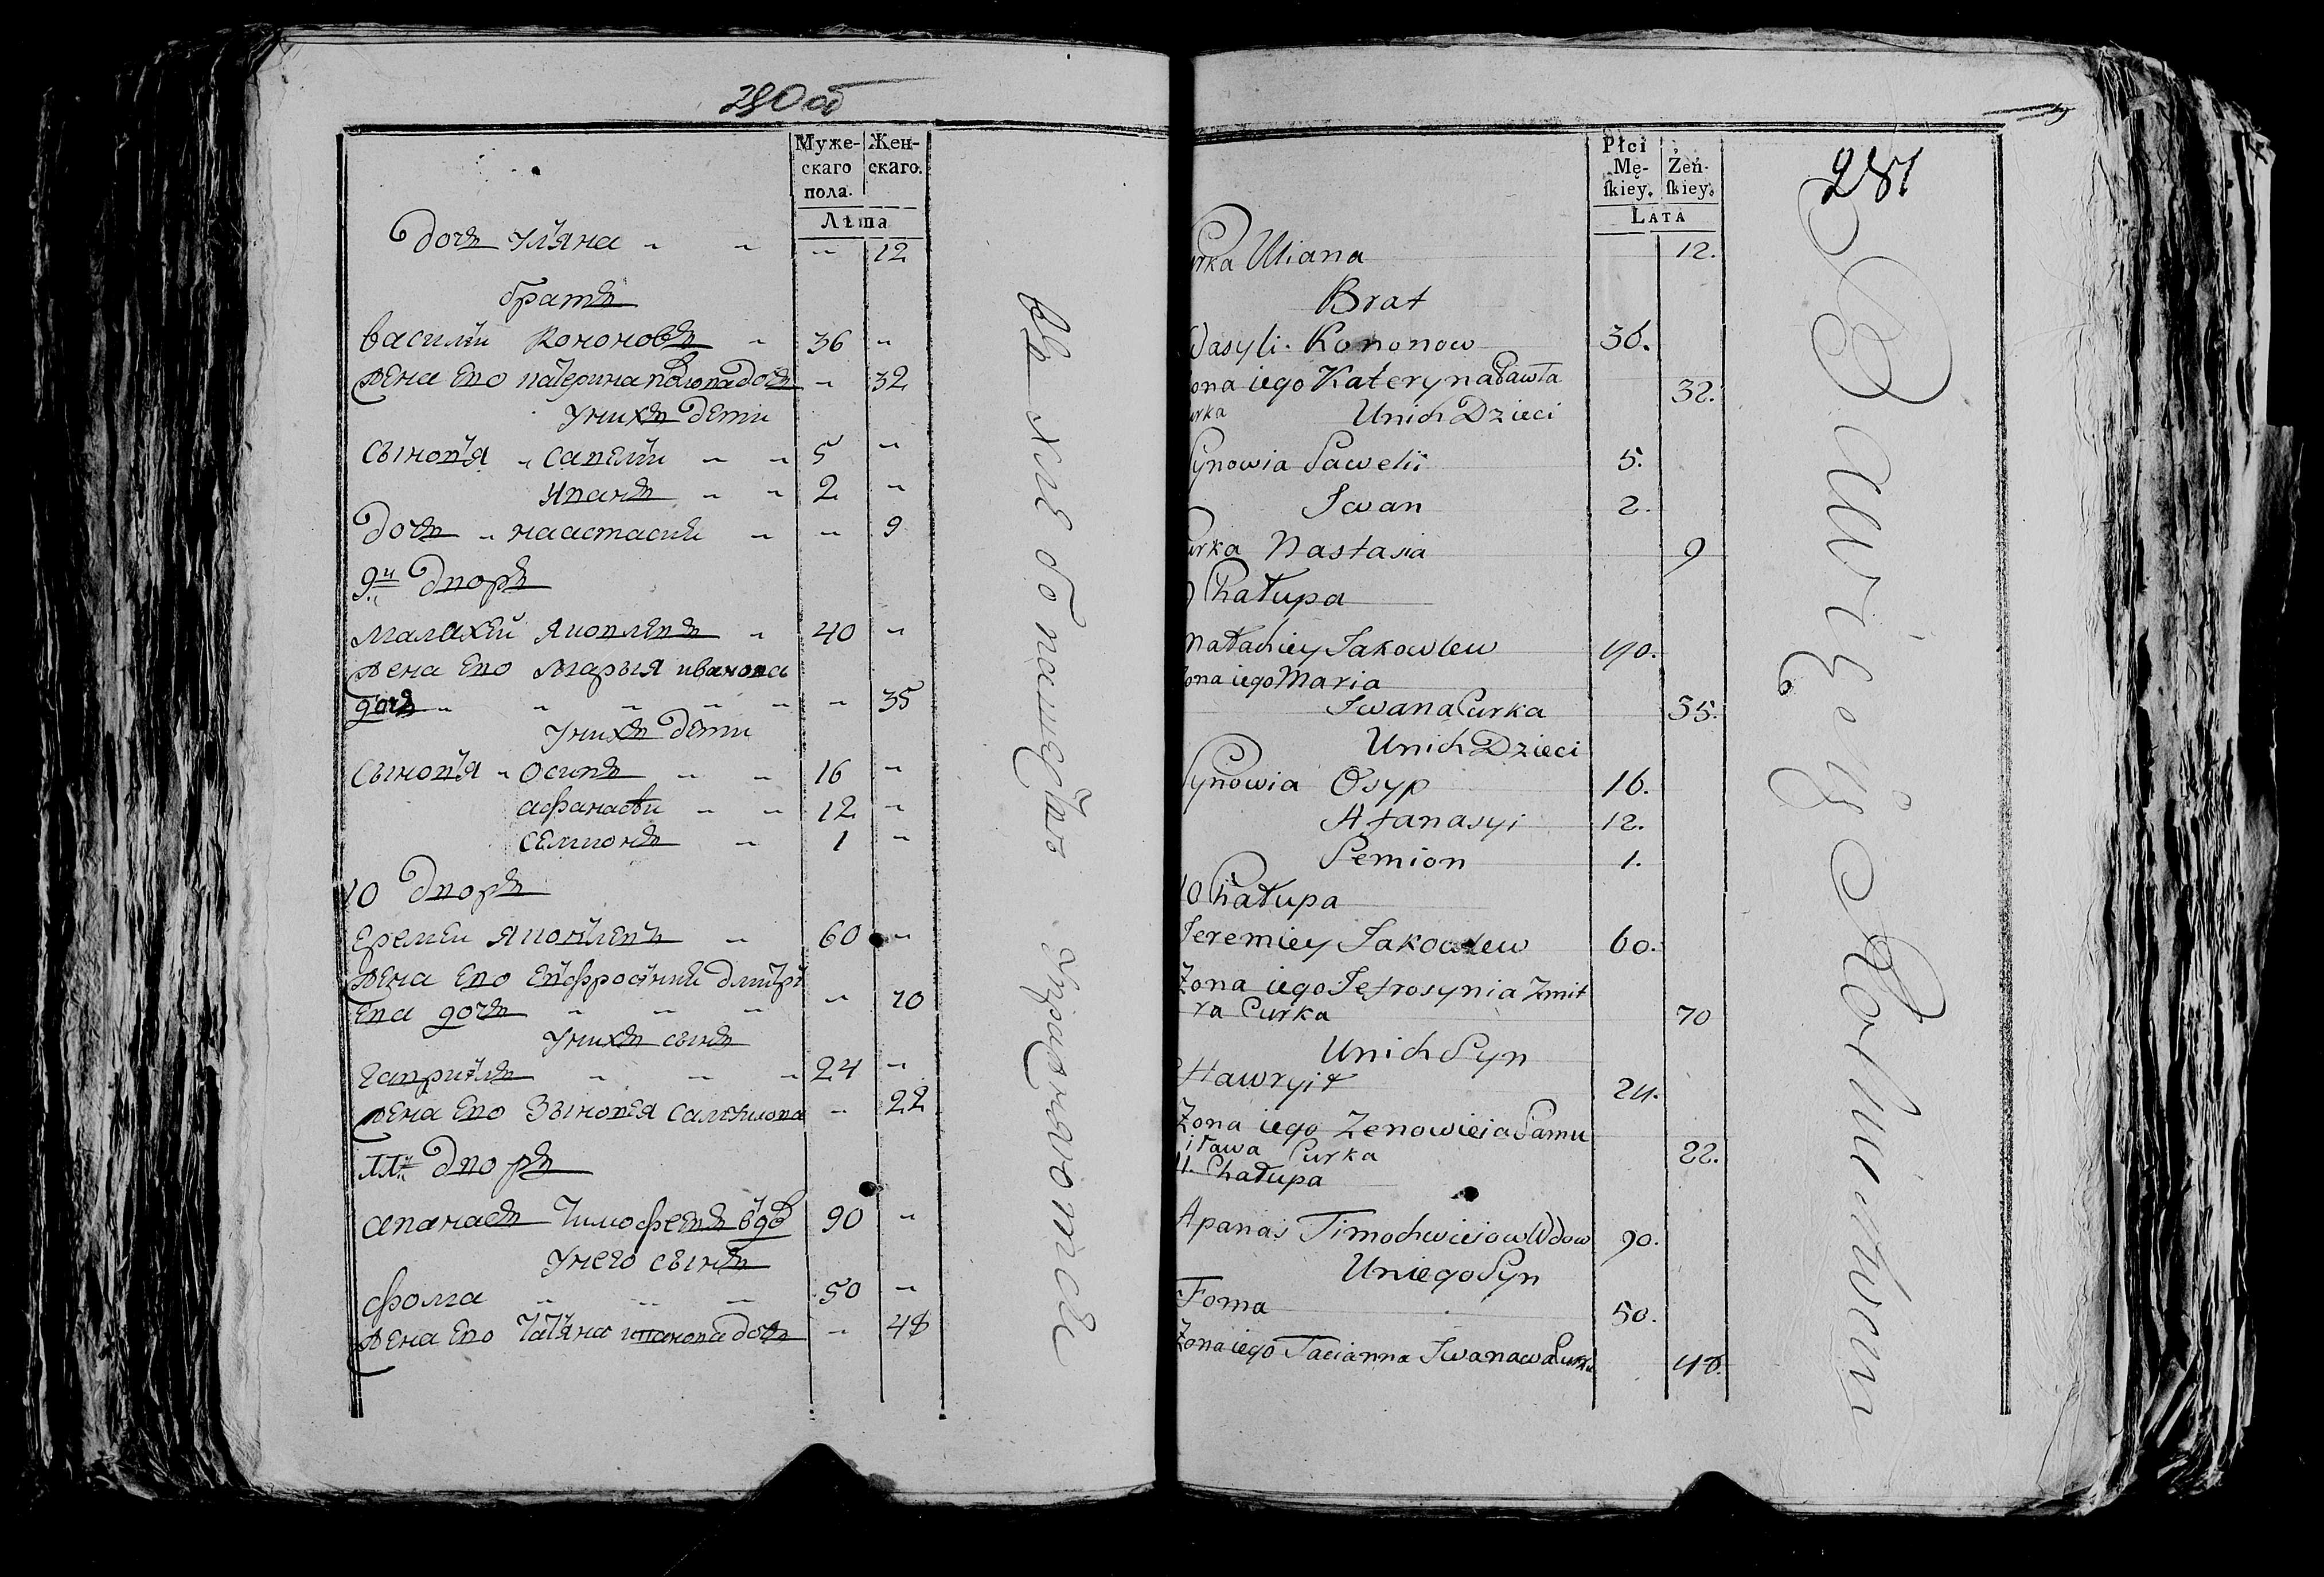 280 об
Муже-
скаго
пола.
Жен-
скаго.
Лѣта
дочъ Ульяна " " " 12
братъ
василїи Кононовъ " 36 "
жена Ево катерина павлова дочъ " 32
Унихъ дети
сыновья " савелїи " " 5 "
Иванъ " " 2 "
дочъ " наастасия " " 9
9й дворъ
Малахей Яковлевъ " 40 "
жена Ево Марья иванова
дочъ " " " " " " 35
Унихъ дети
сыновья " Осипъ " " 16 "
афанасѣи " " 12 "
семионъ " 1 "
10 дворъ
Еремеи Яковлевъ " 60 "
жена Ево Ейфросиния дмитри
Ева дочъ " " " " 70
Унихъ сынъ
гаврилъ " " " 24 "
жена Ево Зыновея самуилова " 22
11й дворъ
апанасъ Тимофеевъ вдов 90 "
Унего сынъ
фома " " " 50 "
жена Ево Татьяна иванова дочъ " 48
281
Płci
Mę-
ſkiey.
Żeń-
ſkiey.
LATA
urka Uliana 12.
Brat
Wasyli Kononow 36.
ona iego Kateryna Pawła
urka 32.
Unich Dzieci
Synowia Sawelii 5.
Iwan 2.
urka Nastasia 9
9 Chałupa
Małachiey Jakowlew 40.
Zona iego Maria
Iwana Curka 35.
Unich Dzieci
Synowia Osyp 16.
Afanasyi 12.
Semion 1.
10 Chałupa
Jeremiey Jakowlew 60.
Zona iego Jefrosynia Zmit
ra Curka 70
Unich Syn
Hawryił 24.
Zona iego Zenowieia Samu
iława Curka 22.
11. Chałupa
Apanas Timochwieiow Wdow 90.
Uniego Syn
Foma 50.
Zona iego Tacianna Iwanawa Curka 48.